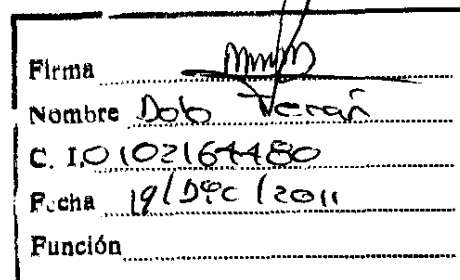 Firma
Nombre Dob Terán
C. I. 0102164480
Fecha 19/Dec/2011
Función